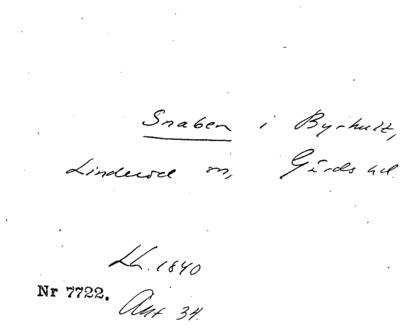 Snaben i Byrhult,
Linderöd sn, Gärds hd.
Lh. 1840
Nr 7722. Akt 34.